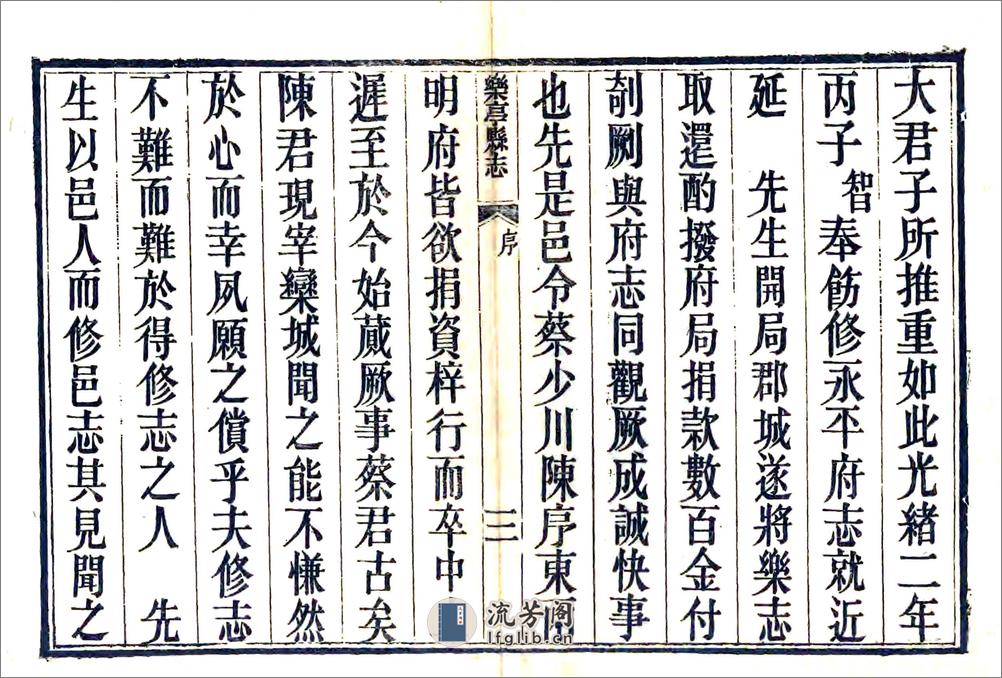 大君子所推重如此光緒二年
丙子智奉飭修永平府志就近
延　先生開局郡城遂將樂志
取還酌撥府局捐款數百金付
剞劂與府志同觀厥成誠快事
也先是邑令蔡少川陳序東
樂亭縣志　序　三
明府皆欲捐資梓行而卒中
遲至於今始蕆厥事蔡君古矣
陳君現宰欒城聞之能不慊然
於心而幸夙願之償乎夫修志
不難而難於得修志之人　先
生以邑人而修邑志其見聞之
流芳阁
lfglib.cn